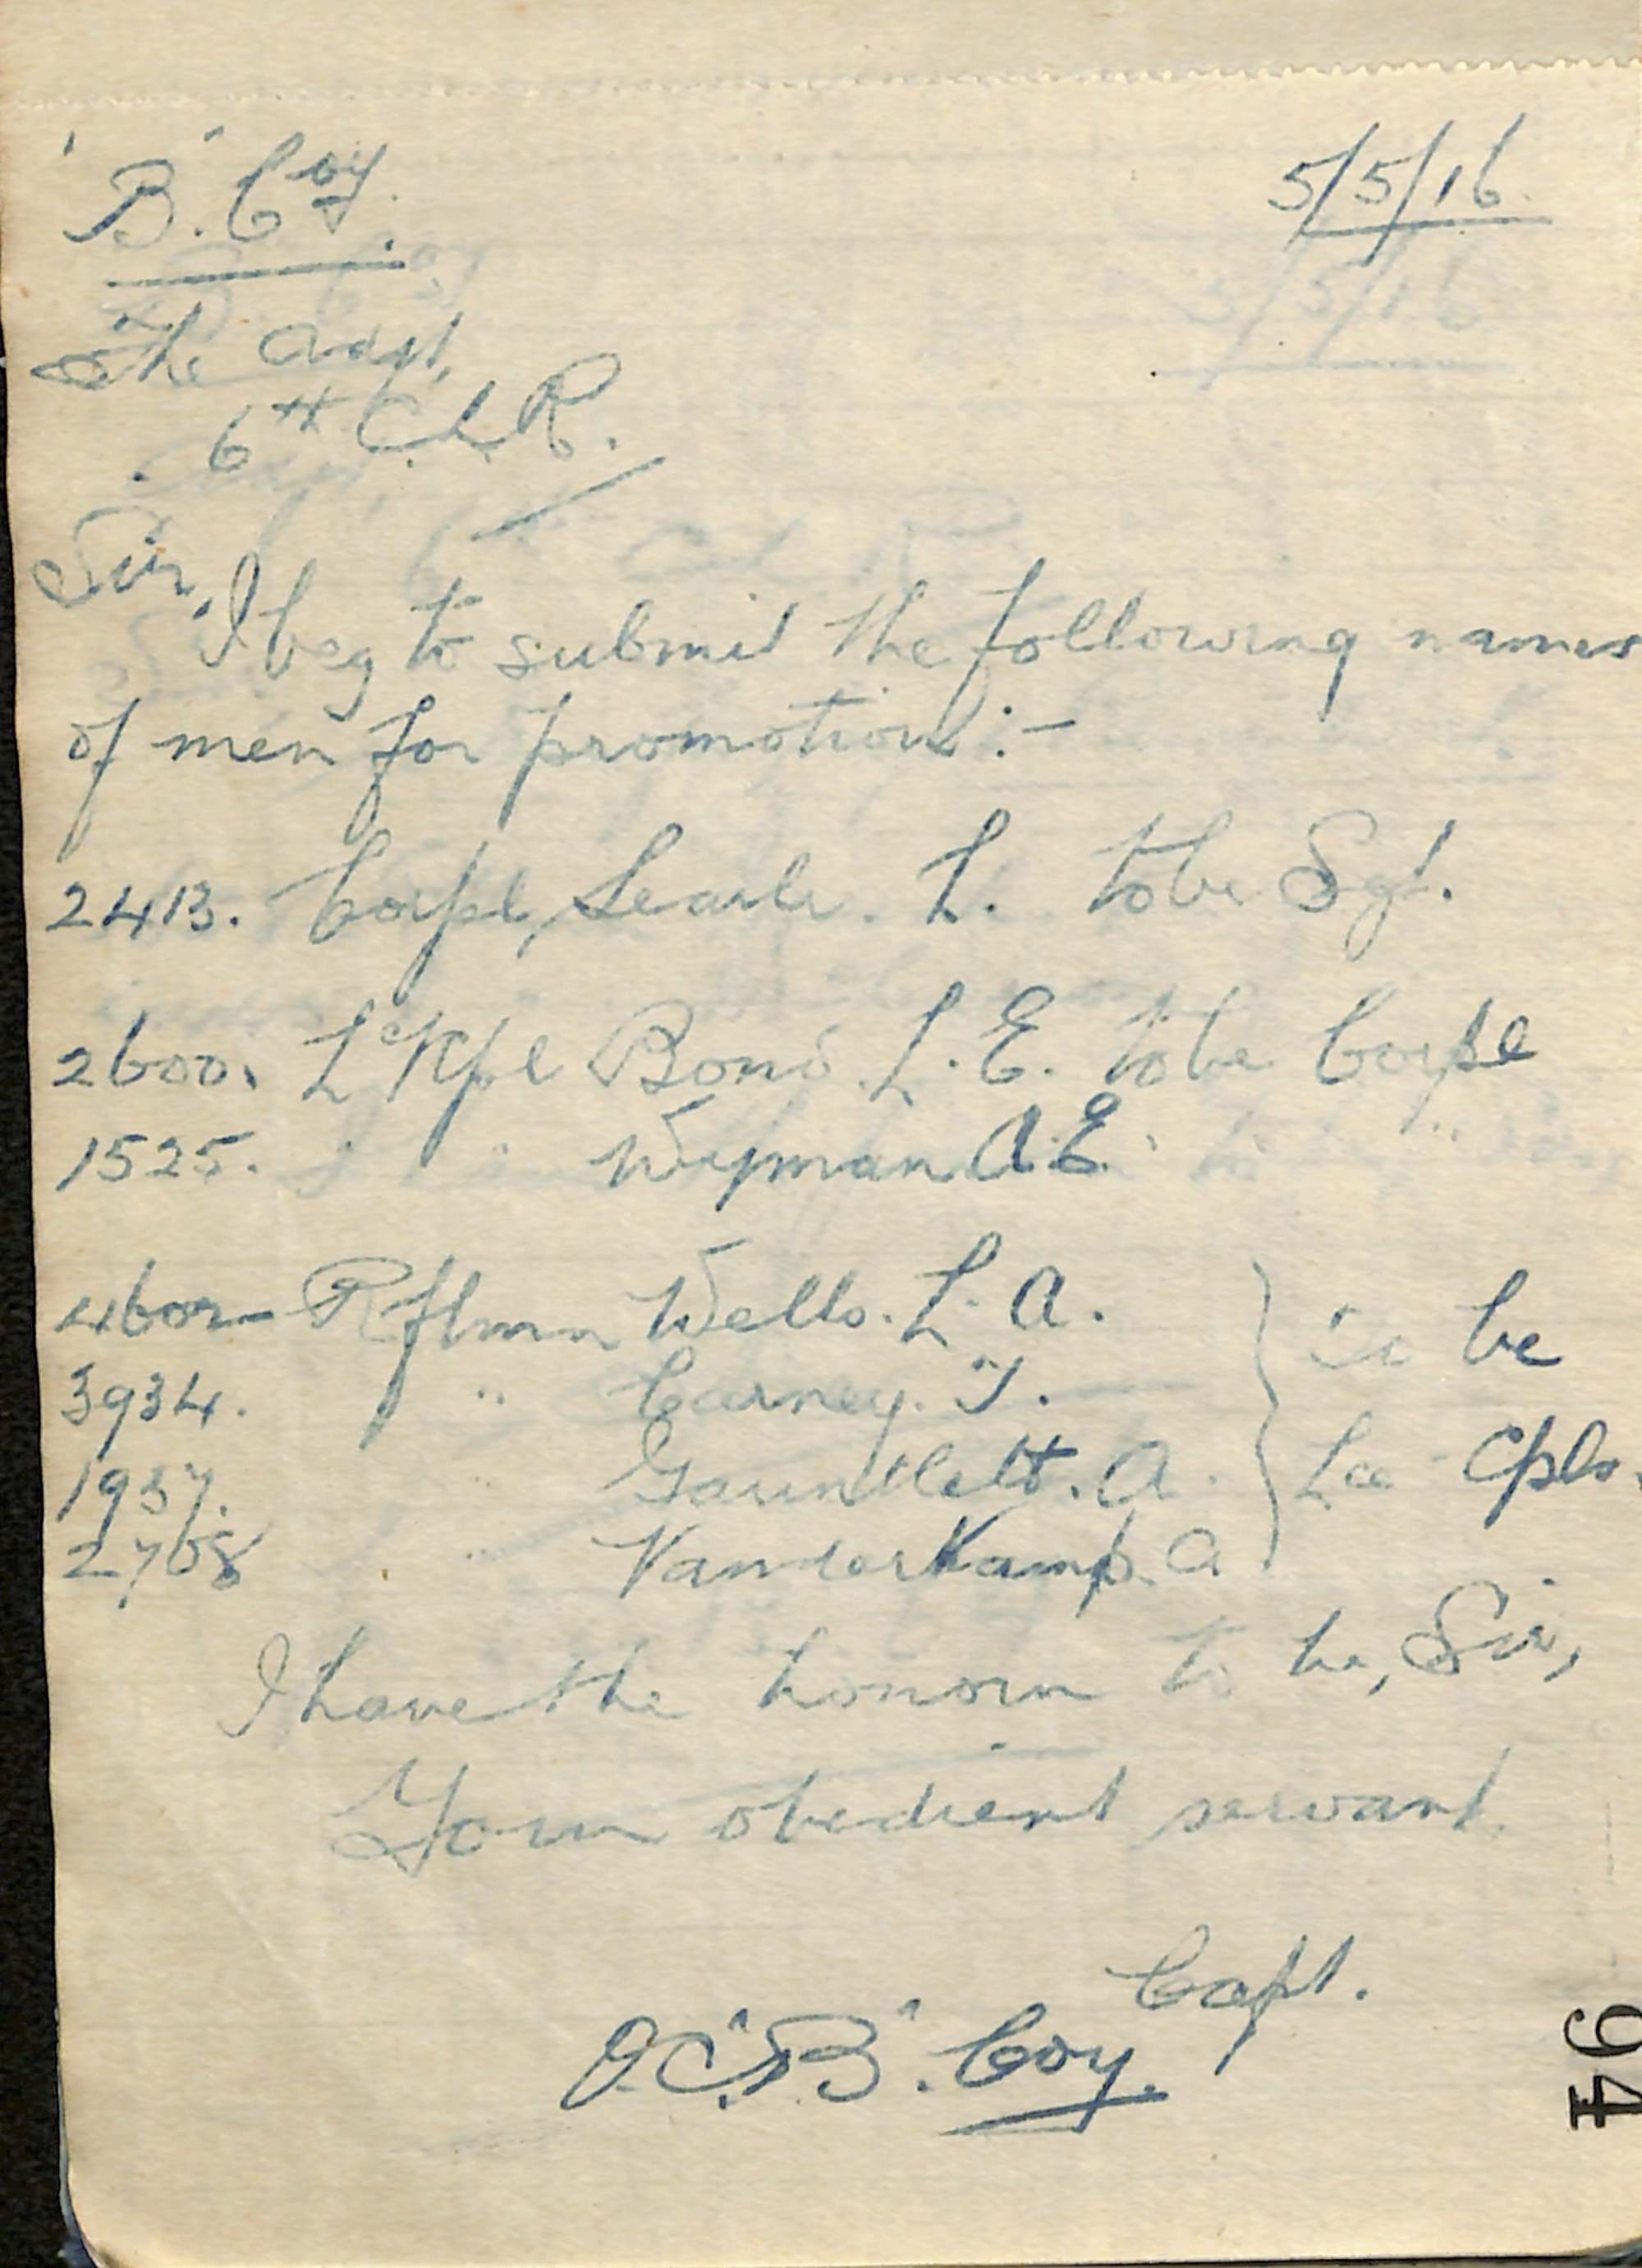 "B" Coy.
5/5/16.
The Adjt,
6th C.L.R.
Sir,
I beg to submit the following names
of men for promotion :-
2413. Corpl, Searle. L. to be Sgt.
2600. L/Cpl Bond. L. E. to be Corpl
1525. " " Wyman A.E.
Rflmn Wells. L. A.
3934. " Carney. T.
1937. " Gauntlett. A.
2768 " Vanderkamp. A
to be
Lce Cpls.
I have the honour to be, Sir,
Your obedient servant.
Capt.
O.C. "B". Coy.
94